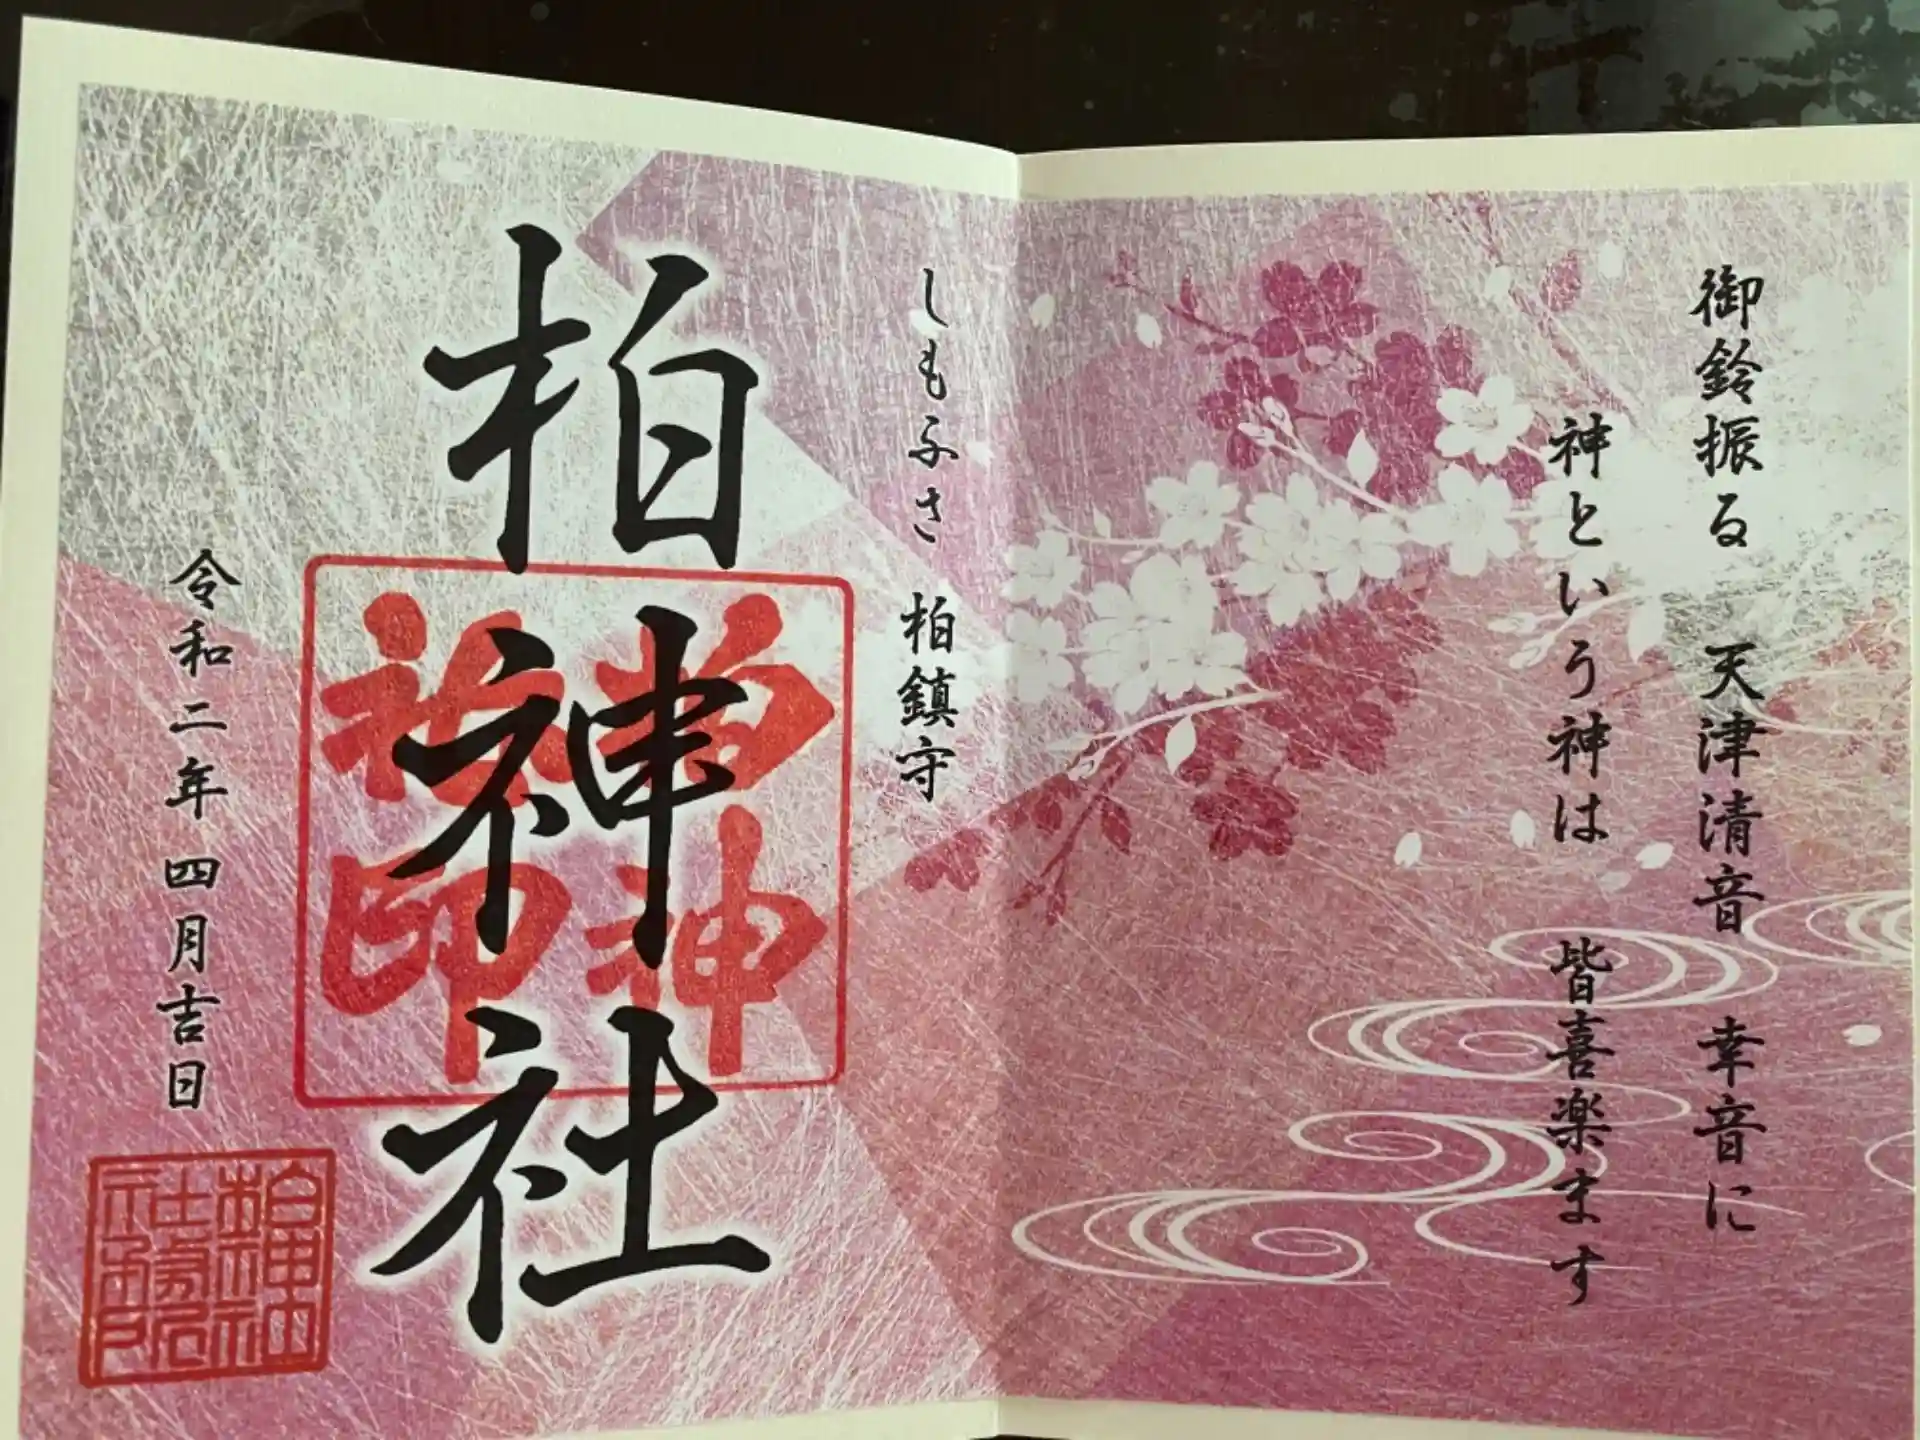 御鈴振る 天津清音 幸音に
神という神は 皆喜楽ます
しもふさ 柏鎮守
柏神社
令和二年 四月吉日
柏神社
社務所印